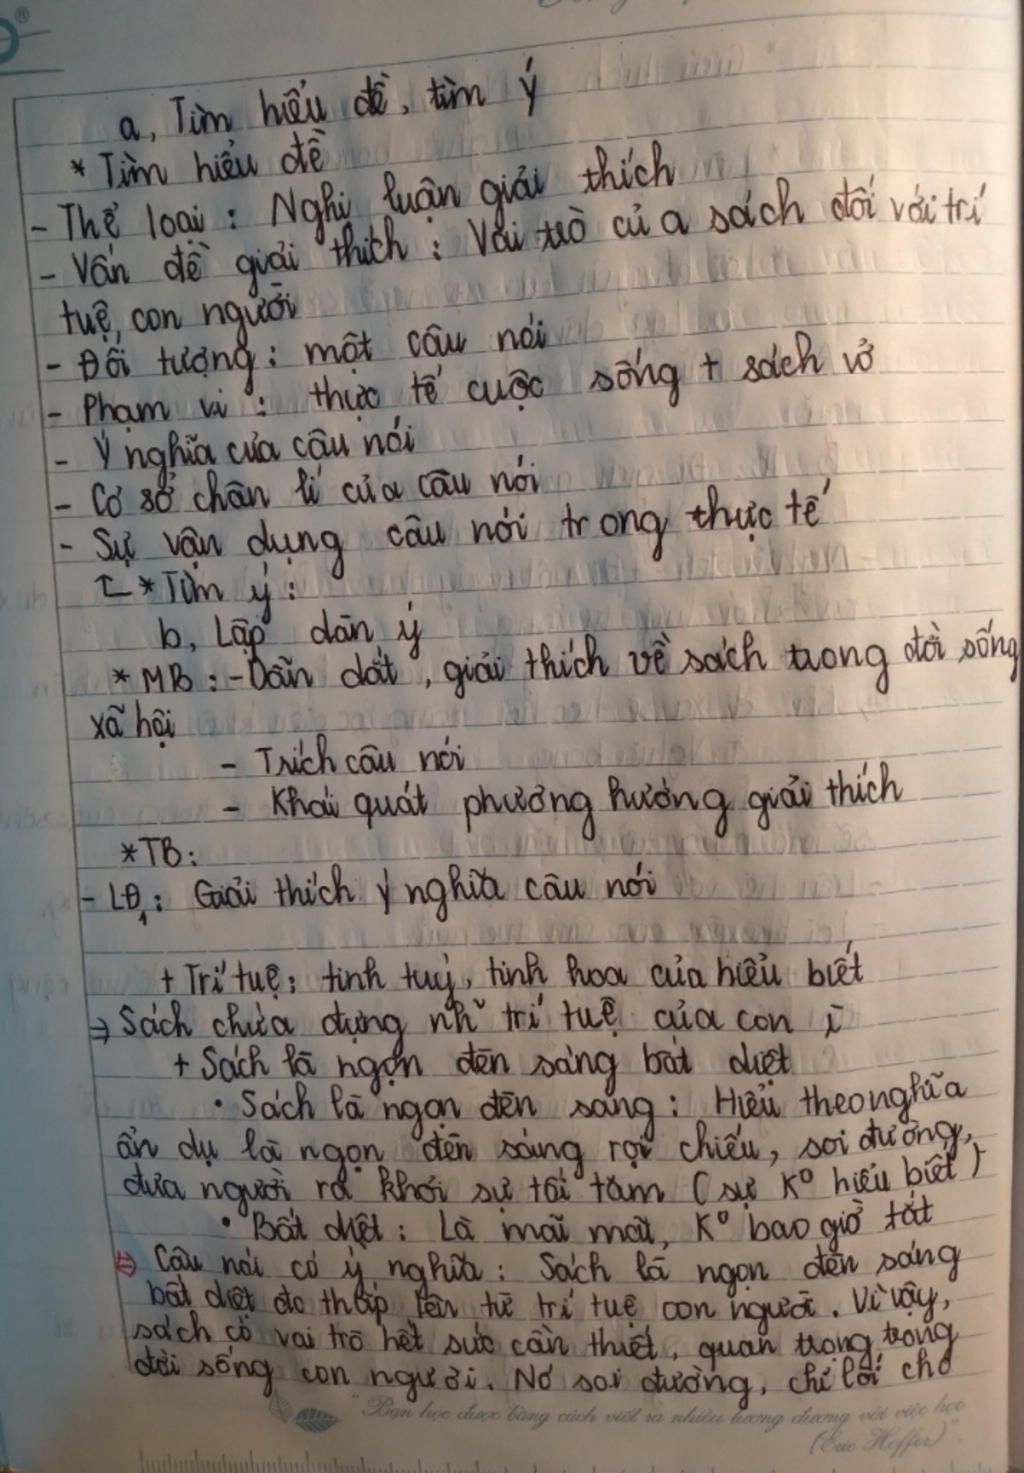 a, Tìm hiểu đề, tìm ý
* Tìm hiểu đề
- Thể loại : Nghị luận giải thích
- Vấn đề giải thích : Vai trò của sách đối với trí
tuệ con người
- Đối tượng : một câu nói
- Phạm vi : thực tế cuộc sống + sách vở
- Ý nghĩa của câu nói
- Cơ sở chân lí của câu nói
- Sự vận dụng câu nói trong thực tế
* Tìm ý :
b, Lập dàn ý
* MB : - Dẫn dắt, giải thích về sách trong đời sống
xã hội
- Trích câu nói
- Khái quát phương hướng giải thích
* TB :
- LĐ1 : Giải thích ý nghĩa câu nói
+ Trí tuệ : tinh tuý, tinh hoa của hiểu biết
=> Sách chứa đựng nh~ trí tuệ của con
+ Sách là ngọn đèn sáng bất diệt
• Sách là ngọn đèn sáng : Hiểu theo nghĩa
ẩn dụ là ngọn đèn sáng rọi chiếu, soi đường,
đưa người ra khỏi sự tối tăm (sự K° hiểu biết)
• Bất diệt : Là mãi mãi, K° bao giờ tắt
=> Câu nói có ý nghĩa : Sách là ngọn đèn sáng
bất diệt do thắp lên từ trí tuệ con người. Vì vậy,
sách có vai trò hết sức cần thiết, quan trọng trong
đời sống con người. Nó soi đường, chỉ lối cho
"Bạn học được bằng cách viết ra nhiều tương đương với việc học
(Eric Hoffer)"